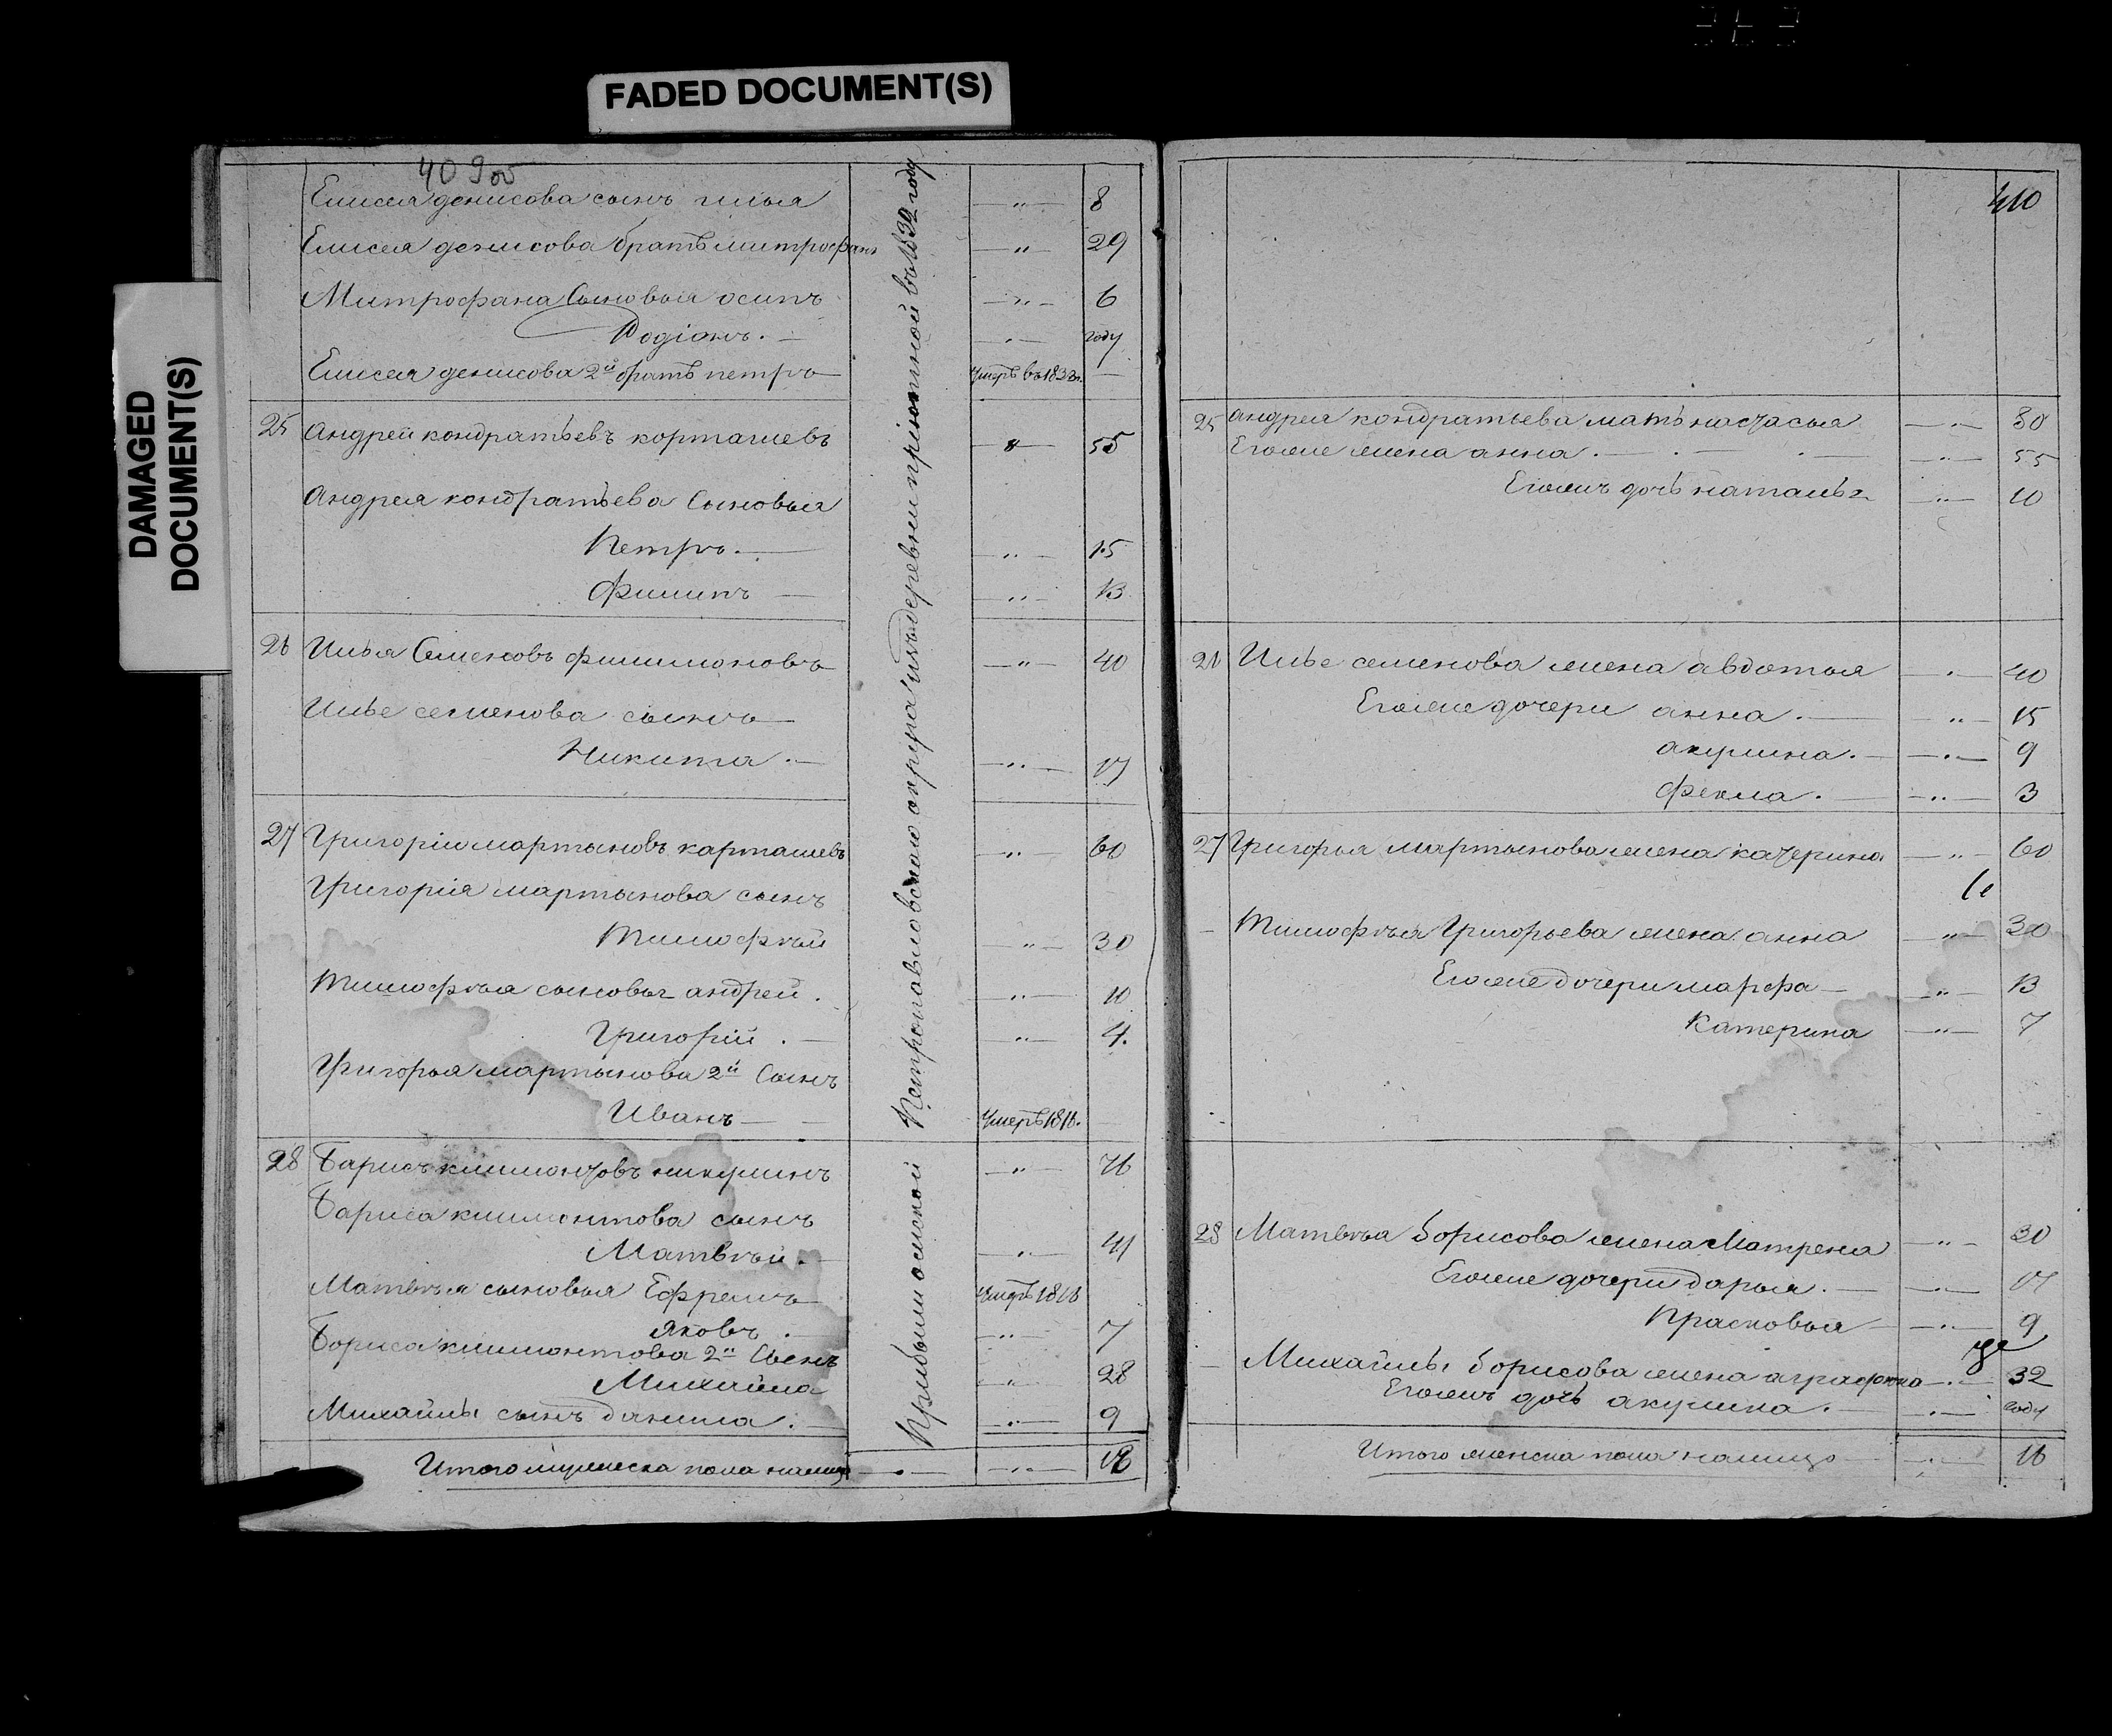 FADED DOCUMENT(S)
DAMAGED DOCUMENT(S)
40 9 об
Елисея денисова сынъ илья — " — 8
Елисея денисова братъ митрофанъ — " — 29
Митрофана Сыновья осипъ — " — 6
Родіонъ. — " — году
Елисея денисова 2й братъ петръ умеръ въ 1833г. —
25 Андрей кондратьевъ карташевъ — " — 55
Андрея кондратьева Сыновья
Петръ. — " — 15
Филипъ — " — 13
26 Илья Семеновъ филимоновъ — " — 40
Илье семенова сынъ
Никита. — " — 17
27 Григорій мартыновъ карташевъ — " — 60
Григорія мартынова сынъ
Тимофѣй — " — 30
Тимофѣя сыновья андрей. — " — 10
Григорій. — " — 4.
Григорья мартынова 2й Сынъ
Иванъ — умеръ 1816.
28 Барисъ климонтовъ никулинъ — " — 76
Бариса климонтова сынъ
Матвѣй. — " — 41
Матвѣя сыновья Ефремъ умеръ 1816
Яковъ. — " — 7
Бориса климонтова 2й Сынъ
Михайла — " — 28
Михайлы сынъ данила. — " — 9
Итого мужеска пола налицо — " — 18
Прибыли омской Петропавловскаго округа изъ деревни пріютиной въ 1832 году
410
25 Андрея кондратьева мать настасья — " — 80
Егоже жена анна. — " — 55
Егожъ дочь наталья — " — 10
26 Илье семенова жена авдотья — " — 40
Егоже дочери анна. — " — 15
акулина. — " — 9
фекла. — " — 3
27 Григорья мартынова жена катерина — " — 60
Тимофѣя Григорьева жена анна — " — 30
Егоже дочери марфа — " — 13
Катерина — " — 7
28 Матвѣя Борисова жена Матрена — " — 30
Егоже дочери дарья. — " — 17
Прасковья — " — 9
Михайлы Борисова жена аграфена — " — 32
Егожъ дочь акулина. — " — году
Итого женска пола налицо — " — 16